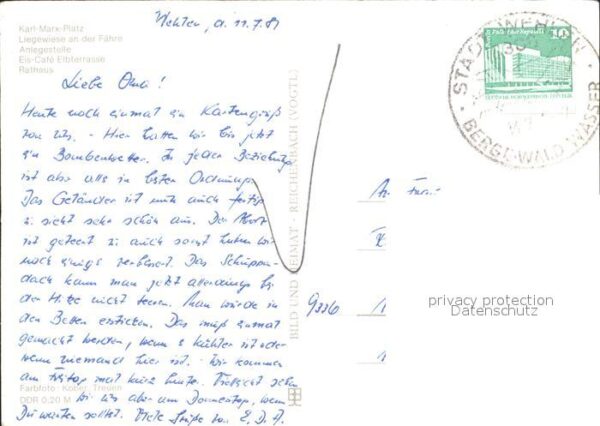 Karl-Marx-Platz
Liegewiese an der Fähre
Anlegestelle
Eis-Café Elbterrasse
Rathaus
Wehlen, d. 11.7.
Liebe Oma!
Heute noch einmal ein Kartengruß
von uns. - Hier hatten wir bis jetzt
ein Bombenwetter. In jeder Beziehung
ist aber alles in bester Ordnung.
Das Geländer ist nun auch fertig
u. sieht sehr schön aus. Der
ist geteert u. auch sonst haben wir
noch einiges verbessert. Das Schuppen-
dach kann man jetzt allerdings bei
der Hitze nicht teeren. Man würde in
den erticken. Das muß einmal
gemacht werden, wenn's kühler ist oder
wenn niemand hier ist. - Wir kommen
am Freitag mal heute. Vielleicht sehen
wir uns aber am Donnerstag, wenn
Du warten solltest. Viele Grüße von E. D. A.
Farbfoto: Kober, Treuen
DDR 0,20 M
BILD UND HEIMAT · REICHENBACH (VOGTL)
An
9336
10
STADT WEHLEN
BERGE-WALD-WASSER
privacy protection
Datenschutz